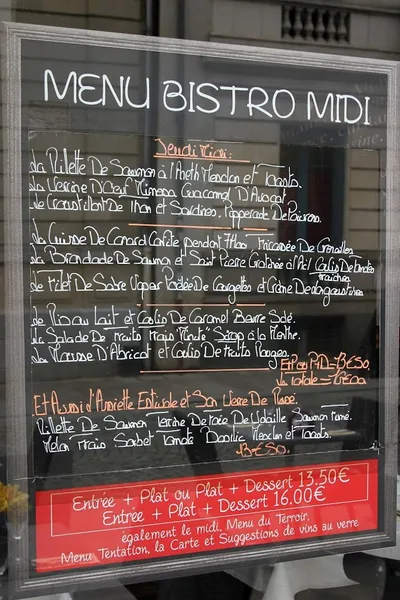 MENU BISTRO MIDI
Jeudi Midi:
La Rillette De Saumon à l'Aneth Mesclun et Toasts.
La Verrine D'Oeuf Mimosa Guacamol D'Avocat
Le Croustillant De Thon et Sardines. Pipperade De Poivrons.
La Cuisse De Canard Confite pendant 7h00, Fricassée De Grenailles
La Brandade De Saumon et Saint Pierre Gratinée à l'Ail Coulis De Tomates
fraiches
Le Filet De Sabre Vapeur De Courgettes et Crème De
Le Riz au Lait et Coulis De Caramel Beurre Salé.
La Salade De Fruits Frais "Minute" Sirop à la Menthe.
La Mousse D'Abricot et Coulis De Fruits Rouges.
E+P ou P+D=13€50.
La totale = 16€00
Et Aussi d'Assiette Estivale et Son Verre De Rosé.
Rillette De Saumon Terrine De Foie De Volaille Saumon Fumé.
Melon Frais Sorbet Tomate Basilic Mesclun et Toasts.
13€50.
Entrée + Plat ou Plat + Dessert 13,50€
Entrée + Plat + Dessert 16.00€
également le midi, Menu du Terroir,
Menu Tentation, la Carte et Suggestions de vins au verre